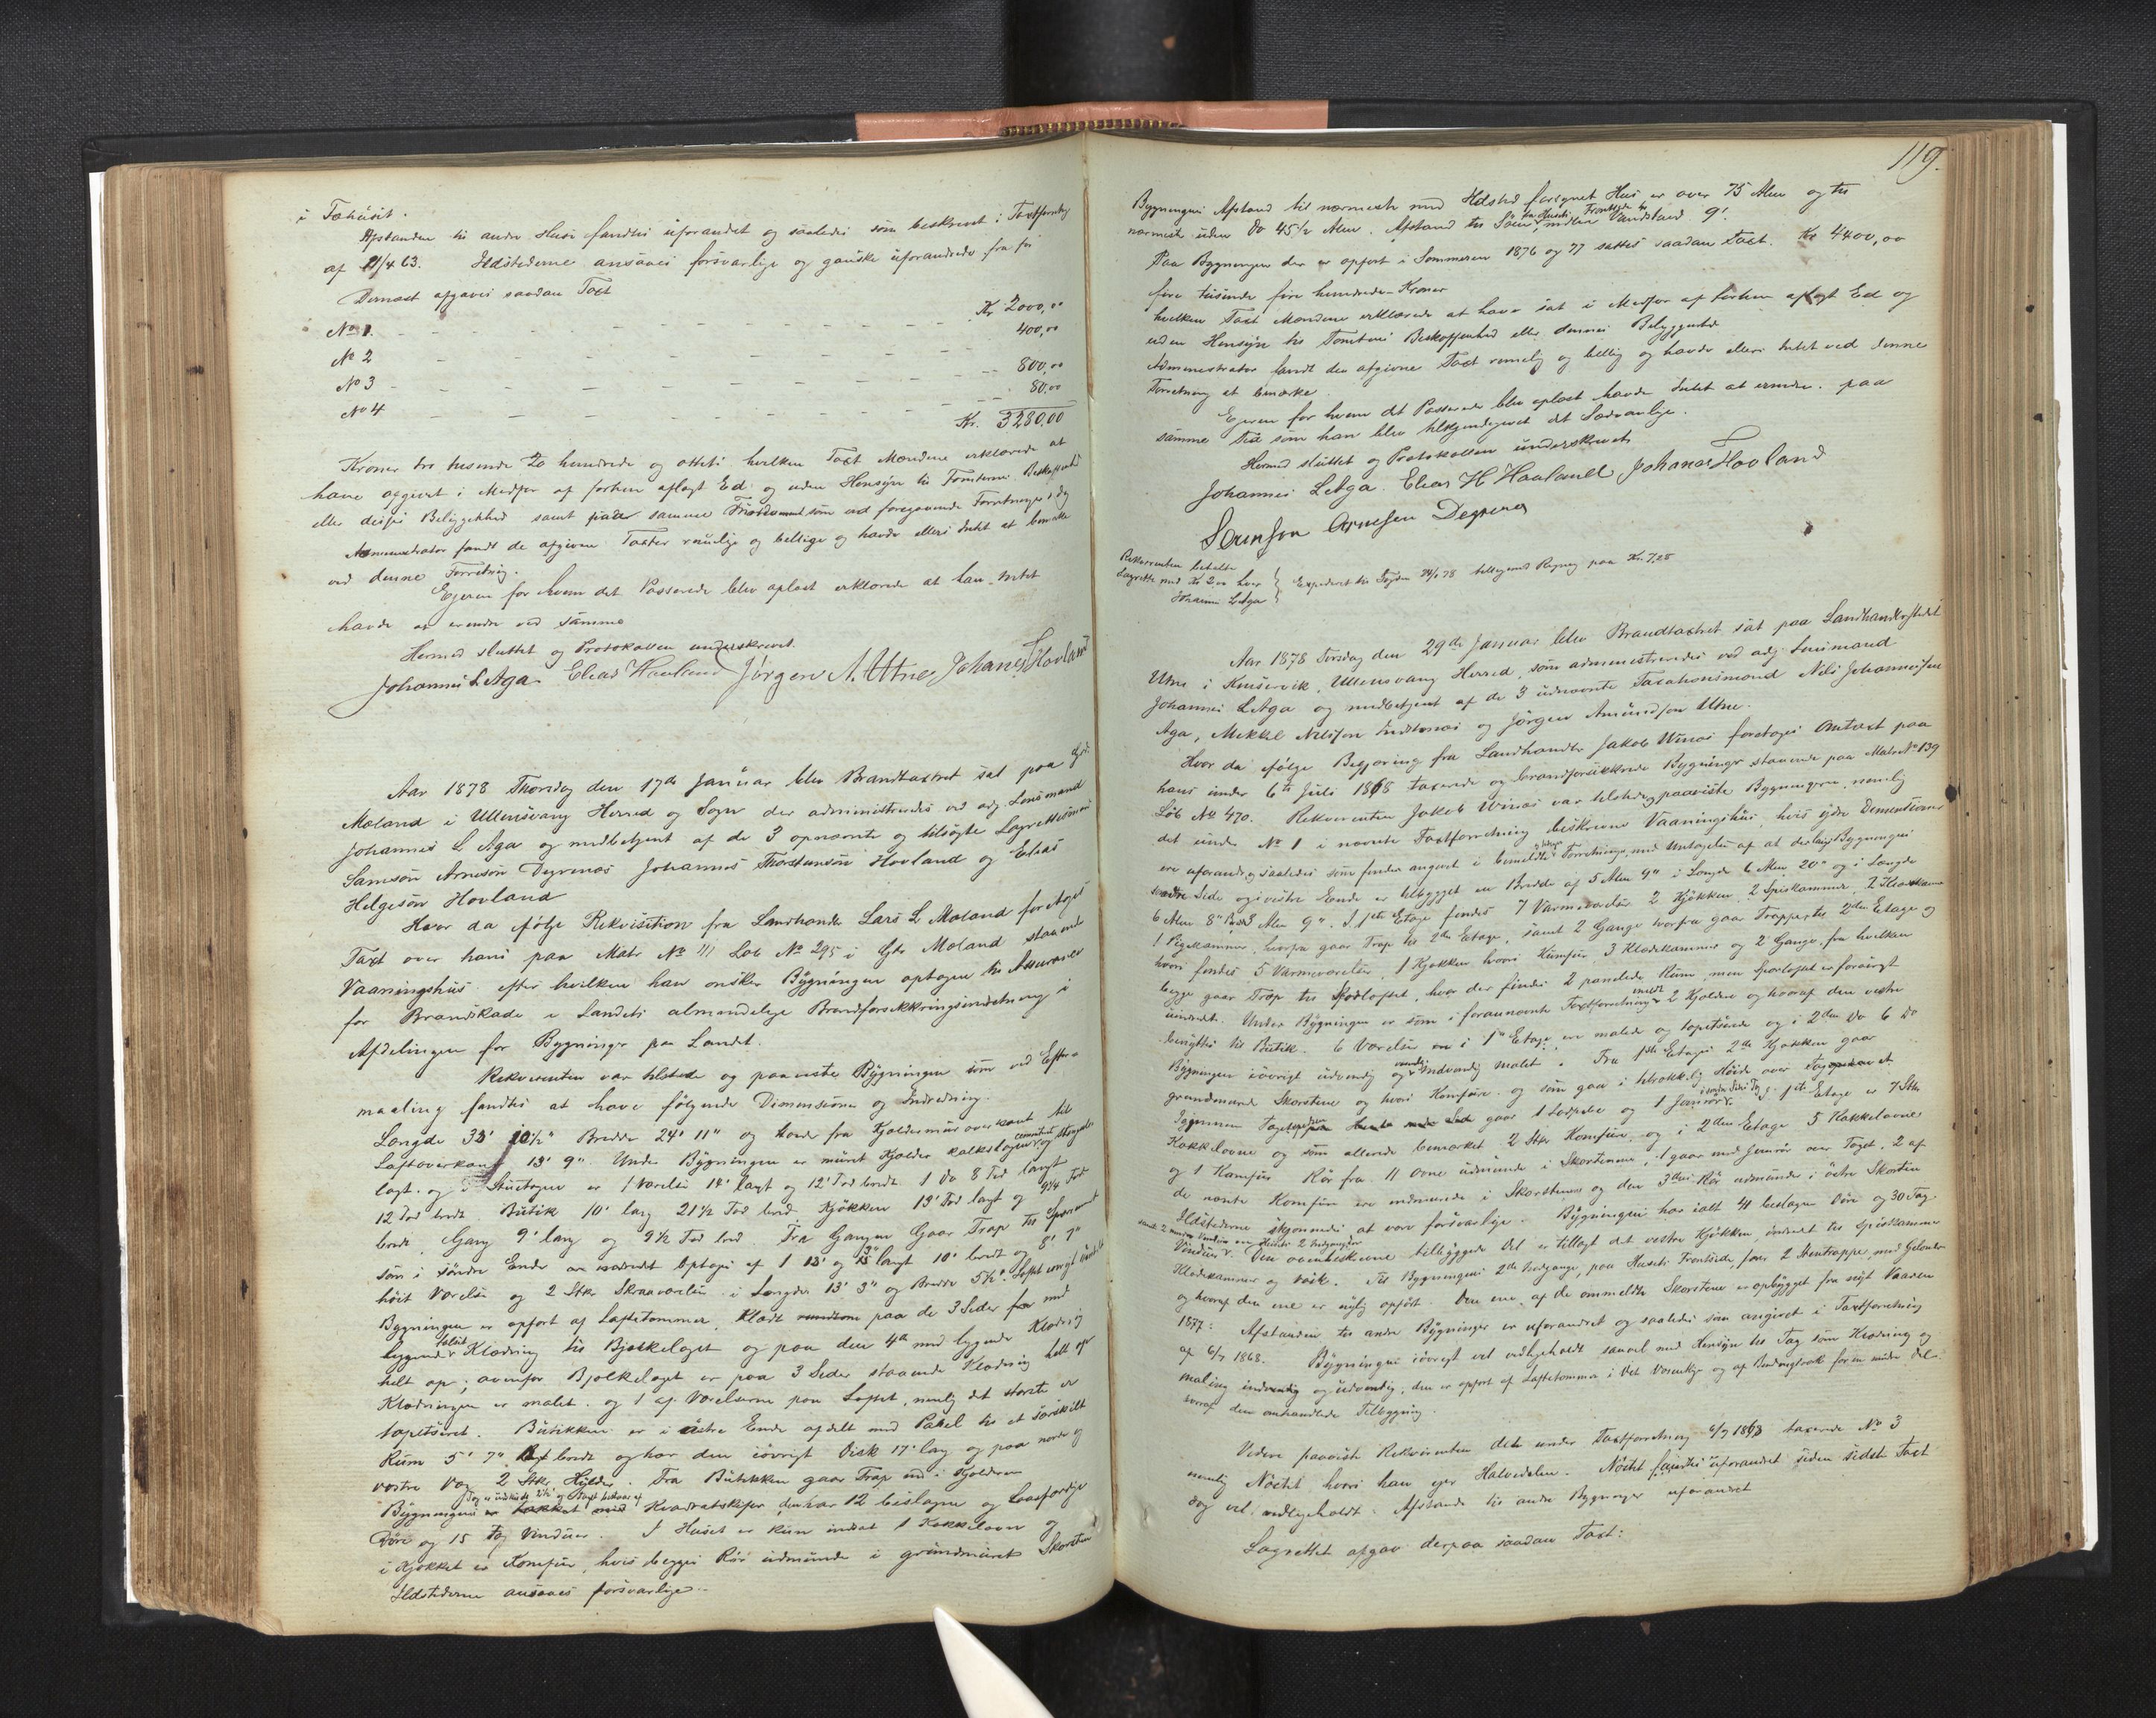 i Føhuset.
Afstanden til andre Huse fandtes uforandret og saaledes som beskrevet i Taxtforretng
af 21/4 63. Ildstederne ansaaes forsvarlige og ganske uforandrede fra før
Dernæst afgaves saadan Taxt
No 1. Kr 2000,00
No 2 400,00
No 3 800,00
No 4 80,00
Kr. 3280,00
Kroner tre tusende to hundrede og otteti hvilken Taxt Mændene erklærede at
have afgivet i Medfør af forhen aflagt Ed og uden Hensyn til Tomternes Beskaffenhed
eller deises Beliggenhed samt paa samme som ved foregaaende Forretninger i Dag
Administrator fandt de afgivne Taxter rimelige og billige og havde ellers Intet at bemærke
ved denne Forretning.
Eieren for hvem det Passerede blev oplæst erklærede at han Intet
havde at erindre ved samme
Hermed sluttet og Protokollen underskrevet.
Johannes L. Aga. Elias Haaland Jørgen A. Utne Johanes Hovland
Aar 1878 Thorsdag den 17de Januar blev Brandtaxtret sat paa Grd.
Mæland i Ullensvang Herred og Sogn der administreredes ved adj. Lensmand
Johannes L Aga og medbetjent af de 3 opnævnte og tilsagte Lagrettesmænd
Samson Arneson Degrenæs Johannes Thorstenson Hovland og Elias
Helgeson Hovland
Hvor da ifølge Rekvisition fra Landhandler Lars L. Mæland foretoges
Taxt over hans paa Matr No 111 Løb No 295 i Grd Mæland staaende
Vaaningshus efter hvilken han ønsker Bygningen optagen til Assurance
for Brandskade i Landets almindelige Brandforsikkringsindretning i
Afdelingen for Bygninger paa Landet.
Rekvirenten var tilstede og paaviste Bygningen som ved Efter-
maaling fandtes at have følgende Dimensioner og Indredning.
Længde 33' 10½" Bredde 24' 11" og Høide fra Kjeldermur overkant til
Loftoverkant 13' 9". Under Bygningen er muret Kjelder kalkslagen cementert og stengulv
lagt. og i Stuetagen er 1 Værelse 14' langt og 12' Fod bredt 1 Do 8 Fod langt
12 Fod bredt. Butik 10' lang 21½ Fod bred Kjøkken 13' Fod langt og 9¾ Fod
bredt. Gang 9' lang og 9½ Fod bred. Fra Gangen Gaar Trap til Sparrerummet
som i søndre Ende er indredet optages af 1 13' og langt 10' bredt og 8' 7"
høit Værelse og 2 Stkr Skraaværelser i Længde 13' 3" og Bredde 5½'. Loftet
Bygningen er opført af Laftetømmer, Klædt paa de 3 Sider med
liggende Klædning til Bjelkelaget og paa den 4de med liggende Klædning
helt op; ovenfor Bjelkelaget er paa 3 Sider staaende Klædning helt op
Klædningen er malet. og 1 af Værelserne paa Loftet, nemlig det største er
tapetseret. Butikken er i østre Ende afdelt med Panel til et særskilt
Rum 5' 7" bredt og har den iøvrigt Disk 17' lang og paa nordre og
vestre Væg 2 Stkr Hylder. Fra Butikken gaar Trap ned i Kjelderen
Bygningens Kvadratskifer, den har 12 beslagne og Laasfærdige
Døre og 15 Fag Vinduer. I Huset er kun indsat 1 Kakkelovn og
i Kjøkket er Komfur, hvis begges Rør udmunde i grundmuret Skorsten
Ildstederne ansaaes forsvarlige.
119.
Bygningens Afstand til nærmeste med Ildsted forsynet Hus er over 75 Alen og til
nærmeste uden Do 45½ Alen. Afstand til Søen fra Husets Frontside til midlere Vandstand 9'.
Paa Bygningen der er opført i Sommeren 1876 og 77 sattes saadan Taxt. Kr 4400,00
fire tusende fire hundrede Kroner
hvilken Taxt Mændene erklærede at have sat i Medfør af forhen aflagt Ed og
uden Hensyn til Tomtens Beskaffenhed eller dennes Beliggenhed
Administrator fandt den afgivne Taxt rimelig og billig og havde ellers Intet ved denne
Forretning at bemærke.
Eieren for hvem det Passerede blev oplæst havde Intet at erindre. paa
samme Tid som han blev tilkjendegivet det Sædvanlige.
Hermed sluttet og Protokollen underskrevet
Johannes L Aga. Elias H Haaland Johanes Hovland
Samson Arneson Degrenes
Rekvirenten betalte
Lagrette med Kr 2oo hver
Johannes L Aga
Expederet til Fogden 24/1 78 tilligemed Regning paa Kr. 7,20
Aar 1878 Tirsdag den 29de Januar blev Brandtaxtret sat paa Landhandlerstedet
Utne i Kinservik, Ullensvang Herred, som administreredes ved adj. Lensmand
Johannes L Aga og medbetjent af de 3 udnævnte Taxationsmænd Nils Johannesen
Aga, Mikkel Nilsson Indtvenæs og Jørgen Amundson Utne.
Hvor da ifølge Begjæring fra Landhandler Jakob Winæs foretoges Omtaxt paa
hans under 6te Juli 1868 taxerede og brandforsikkrede Bygninger staaende paa Matr No 139
Løb No 470. Rekvirenten Jakob Winæs var tilstede og paaviste Bygningerne nemlig
det under No 1 i nævnte Taxtforretning beskrevne Vaaningshus, hvis ydre Dimensioner
ere uforandrede saaledes som findes angivet i bemeldte Forretninger, med Undtagelse af at der langs Bygningens
søndre Side og i vestre Ende er tilbygget en Bredde af 5 Alen 9" i Længde 6 Alen 20" og i Længde
6 Alen 8" Bredde Alen 9". I 1ste Etage findes 7 Varmeværelser 2 Kjøkken, 2 Spiskammer, 2 Klædekammer
1 Pigekammer, hvorfra gaar Trap til 2den Etage, samt 2 Gange hvorfra gaar Trapper til 2den Etage og
hvori findes 5 Varmeværelser, 1 Kjøkken hvori Kumfur 3 Klædekammer og 2 Gange, fra hvilken
begge gaar Trap til Spærloftet, hvor der findes 2 panelede Rum men Spærloftet er forøvrigt
uindredt. Under Bygningen er som i forannævnte Taxtforretning meldt 2 Kjeldere og hvoraf den vestre
benyttes til Butik. 6 Værelser i 1ste Etage ere malede og tapetserede og i 2den Do 6 Do
Bygningen iøvrigt udvendig og indvendig malet. Fra 1ste Etages 2de Kjøkken gaar
grundmurede Skorstene og hvori Komfure. og som gaa i tilstrækkelig Høide over
gaar 1 Ledpibe og 1 Jernrør. I 1ste Etage er 7 Stkr
Kakkelovne og som allerede bemærket 2 Stkr Komfure, og i 2den Etage 5 Kakkelovne
og 1 Komfur Rør fra 11 Ovne udmunde i Skorstenene, 1 gaar med Jernrør over Taget. 2 af
de nævnte Komfure ere indmurede i Skorstenene og den 3dies Rør udmunder i østre Skorsten
Ildstederne skjønnedes at være forsvarlige. Bygningen har ialt 41 beslagne Døre og 30 Fag
Vinduer. Den ovenbeskrevne tilbyggede Del er tillagt det vestre Kjøkken, indredet til Spiskammer
Klædekammer og Vask. Til Bygningens 2de Indgange, paa Husets Frontside, fører 2 Stentrapper med Gelænder
og hvoraf den ene er nylig opført. Den ene af de ommeldte Skorstene er opbygget fra nyt Vaaren
1877. Afstanden til andre Bygninger er uforandret og saaledes som angivet i Taxtforretning
af 6/7 1868. Bygningen iøvrigt vel vedligeholdt saavel med Hensyn til Tag som Klædning og
maling indvendig og udvendig, den er opført af Laftetømmer i det Væsentlige og af Bindingsverk for en mindre Del
hvoraf den omhandlede Tilbygning.
Videre paaviste Rekvirenten det under Taxtforretning 6/7 1868 taxerede No 3
nemlig Nøstet hvori han eier Halvedelen. Nøstet fandtes uforandret siden sidste Taxt
og vel vedligeholdt. Afstande til andre Bygninger uforandret
Lagrettet afgav derpaa saadan Taxt: